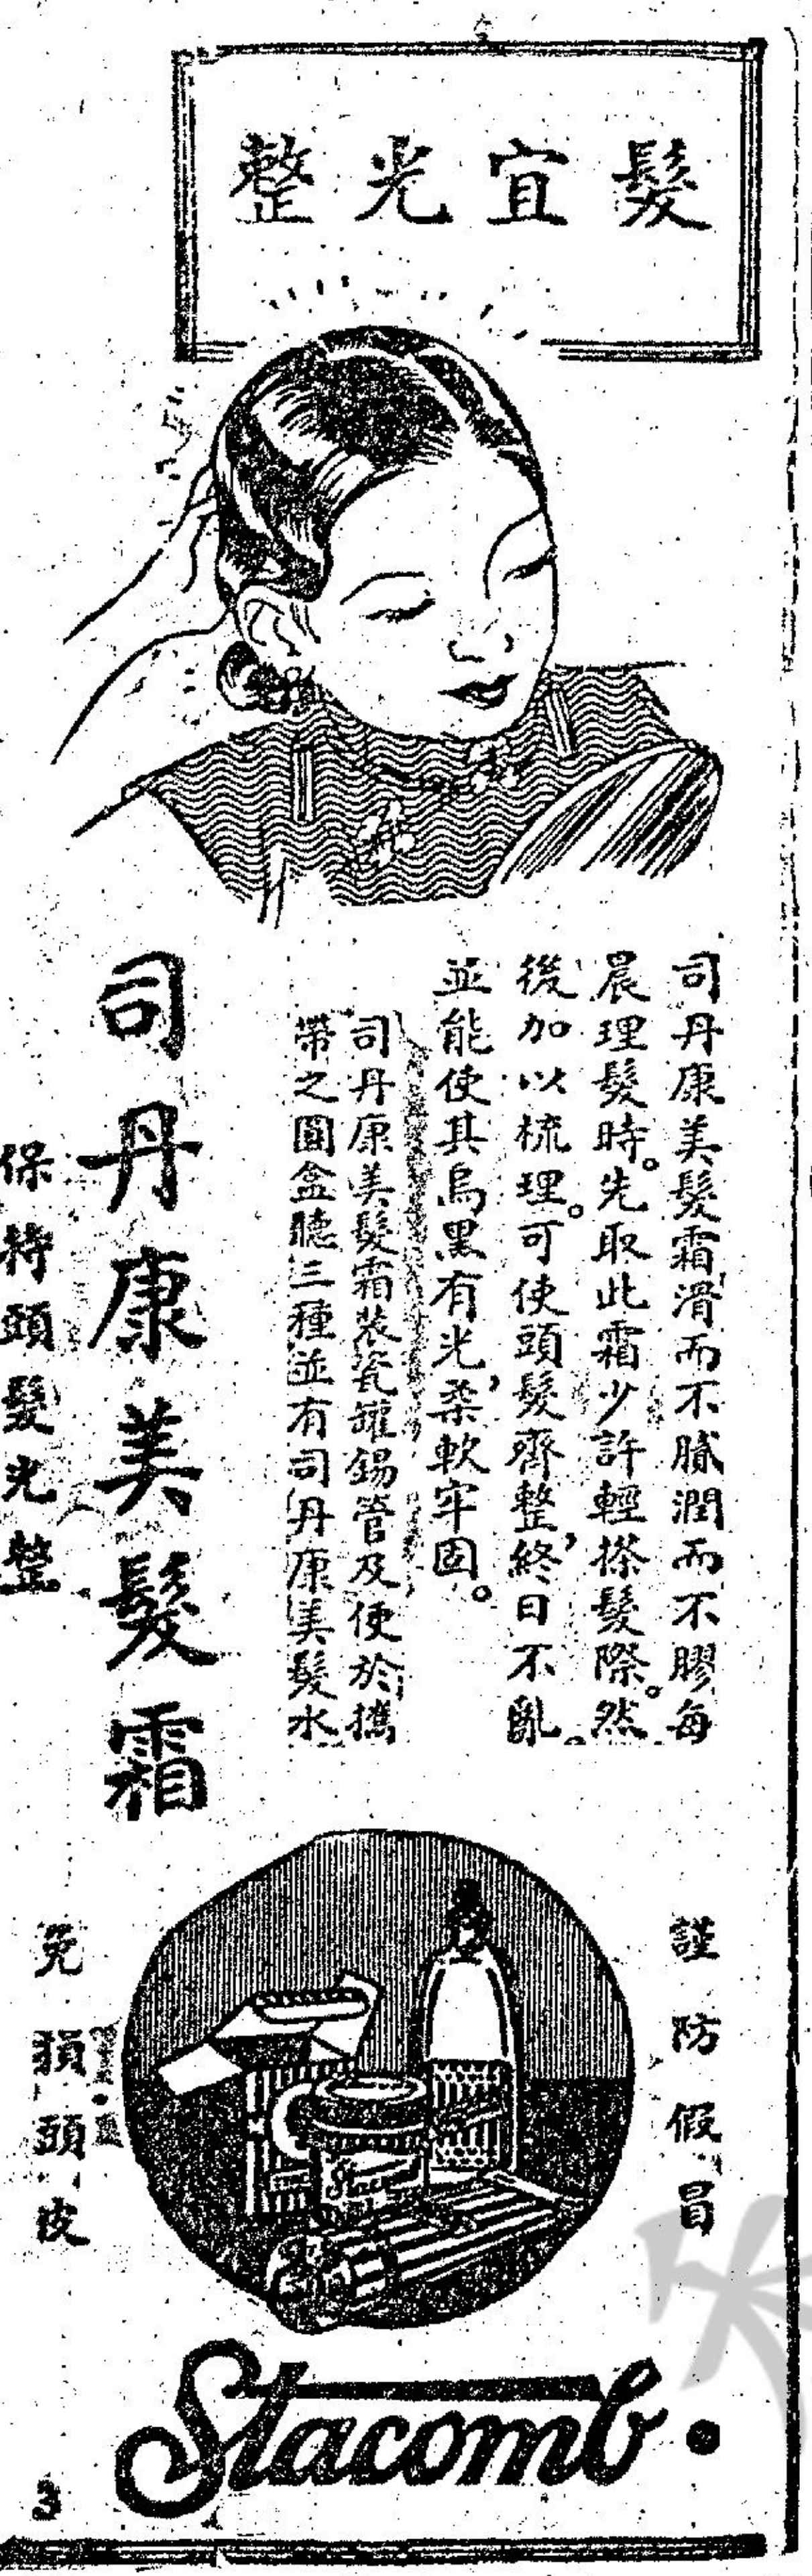 髮宜光整
司丹康美髮霜滑而不膩潤而不膠每
晨理髮時。先取此霜少許輕搽髮際。然
後加以梳理。可使頭髮齊整，終日不亂。
並能使其烏黑有光，柔軟牢固。
司丹康美髮霜裝瓷罐錫管及便於攜
帶之圓盒聽三種並有司丹康美髮水
司丹康美髮霜
保持頭髮光整
謹防假冒
免損頭皮
Stacomb.
3